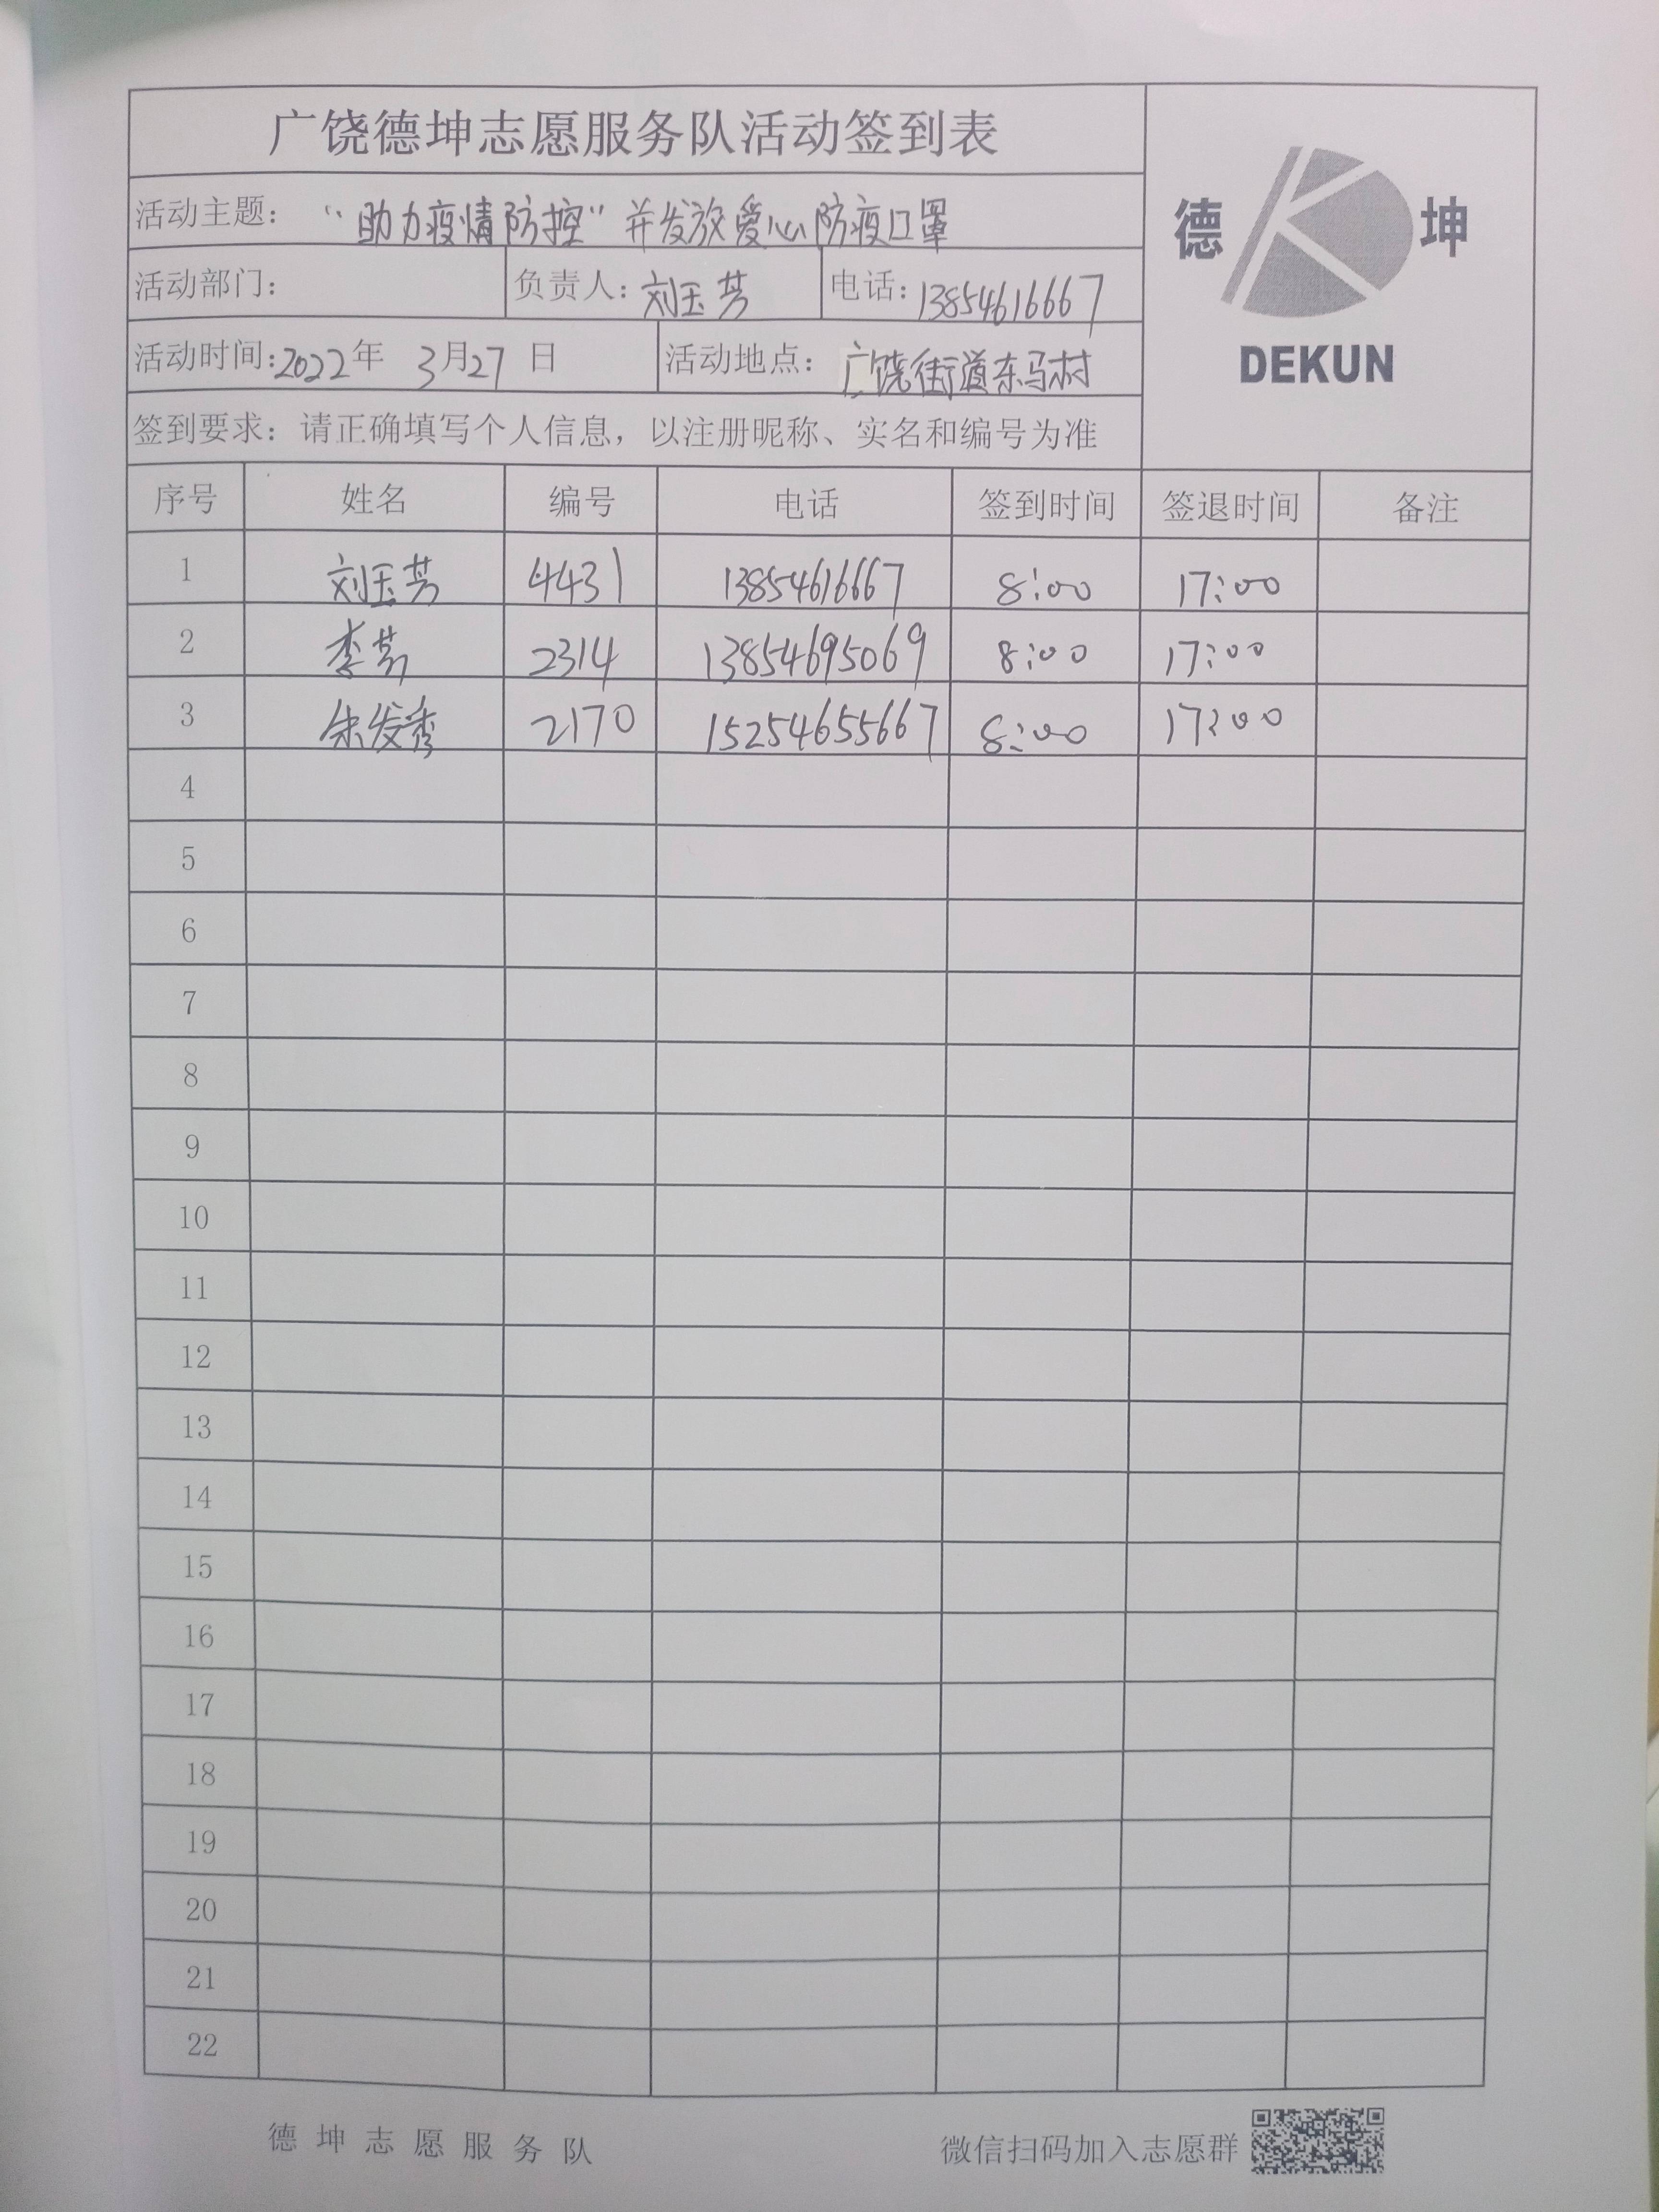 广饶德坤志愿服务队活动签到表
德 坤
DEKUN
活动主题：“助力疫情防控”并发放爱心防疫口罩
活动部门： 负责人：刘玉芳 电话：13854616667
活动时间：2022年 3月27日 活动地点：广饶街道东马村
签到要求：请正确填写个人信息，以注册昵称、实名和编号为准
序号 姓名 编号 电话 签到时间 签退时间 备注
1 刘玉芳 4431 13854616667 8:00 17:00
2 李芳 2314 13854695069 8:00 17:00
3 朱发秀 2170 15254655667 8:00 17:00
4
5
6
7
8
9
10
11
12
13
14
15
16
17
18
19
20
21
22
德坤志愿服务队 微信扫码加入志愿群